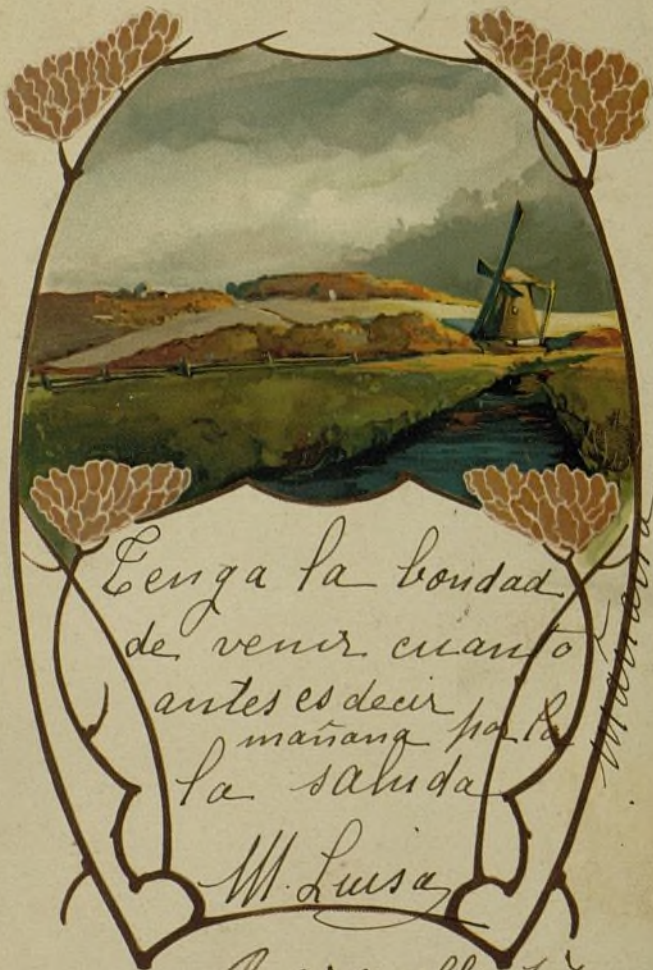 Tenga la bondad
de venir cuanto
antes es decir
mañana por la
mañana
la saluda
M. Luisa